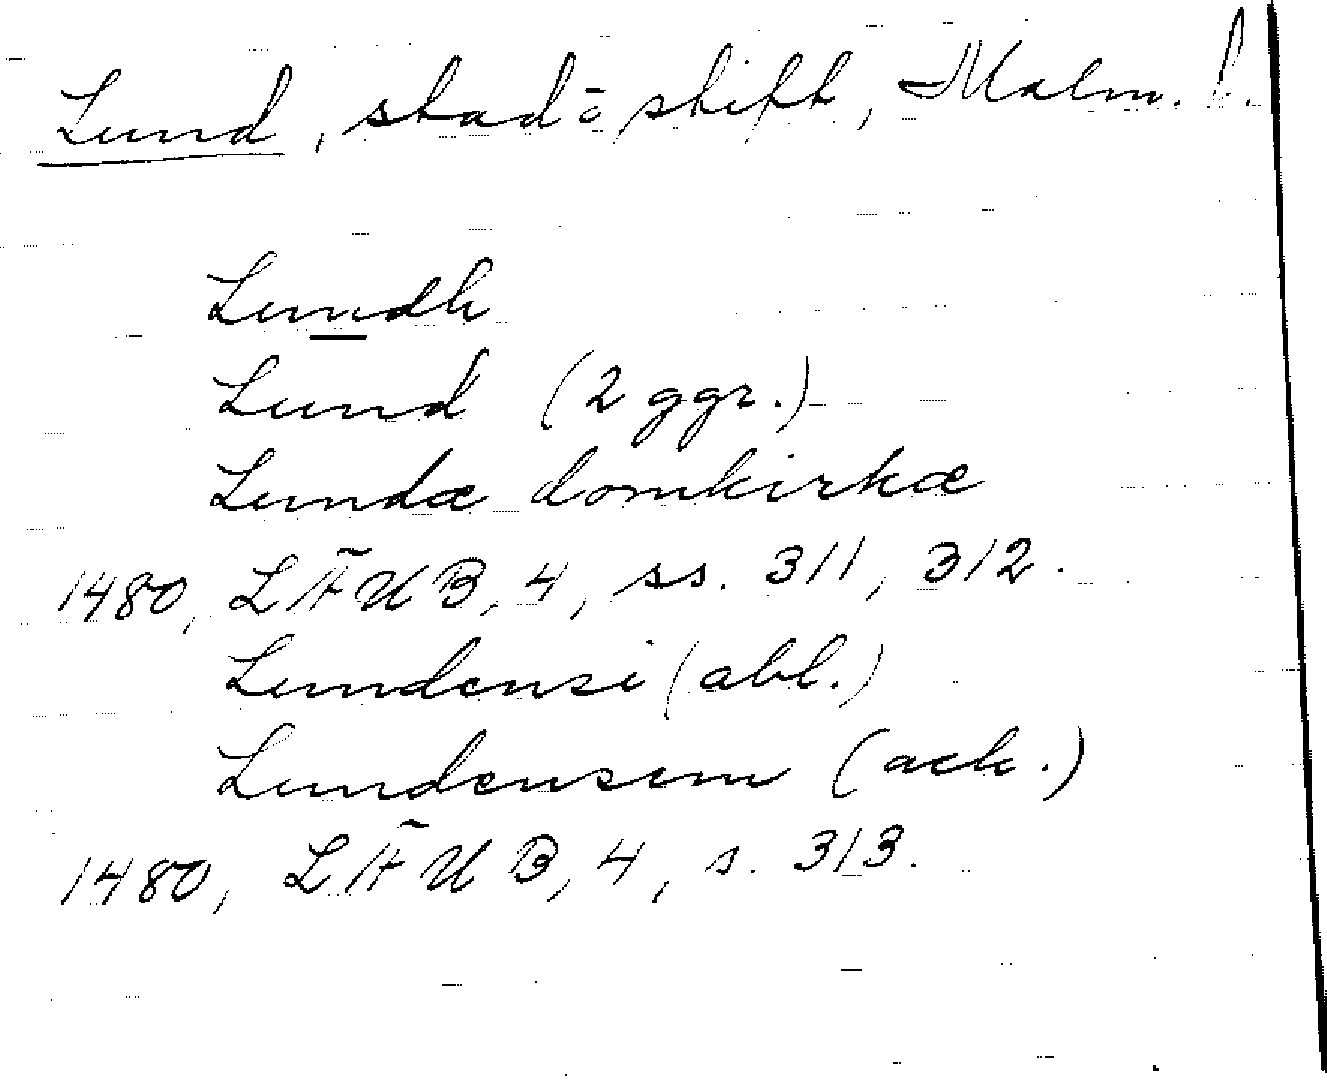 Lund, stad o. stift, Malm. l.
Lundh
Lund (2 ggr.)
Lundæ domkirkæ
1480, LÄUB, 4, ss. 311, 312.
Lundensi (abl.)
Lundensem (ack.)
1480, LÄUB, 4, s. 313.